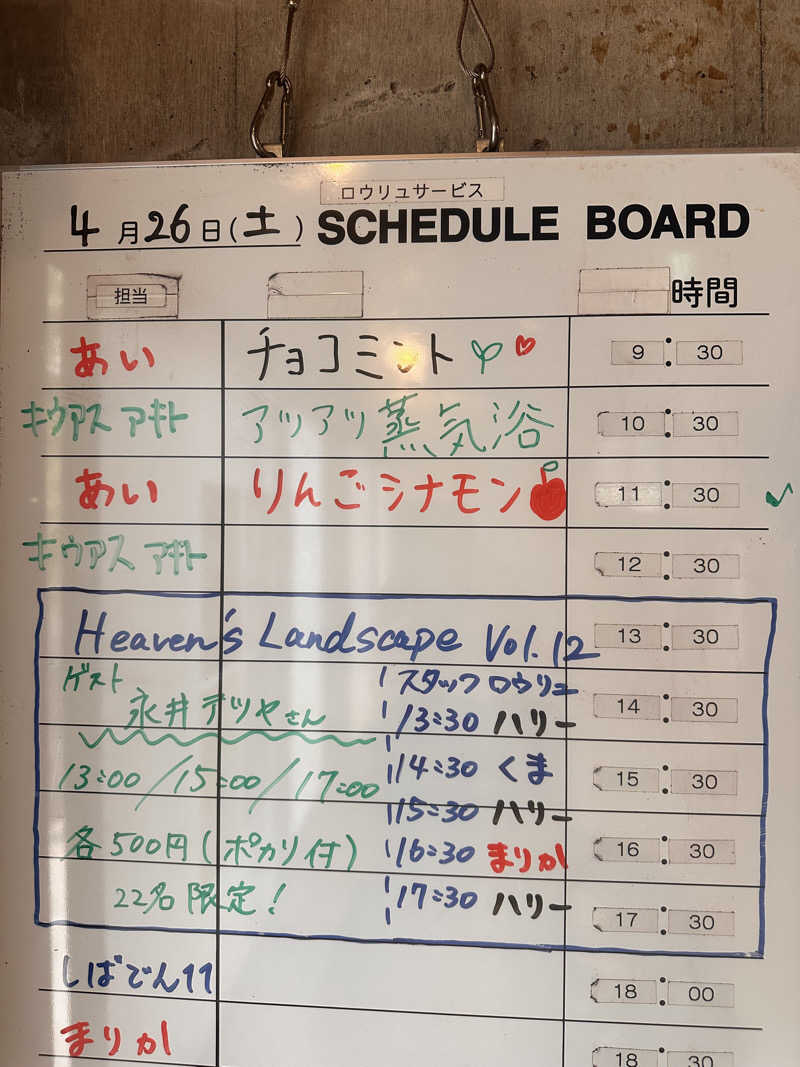 ロウリュサービス
4月26日(土) SCHEDULE BOARD
担当 時間
あい チョコミント 9:30
キウアス アキト アツアツ蒸気浴 10:30
あい りんごシナモン 11:30
キウアス アキト 12:30
Heaven's Landscape Vol.12 13:30
ゲスト スタッフロウリュ
永井テツヤさん 13:30 ハリー 14:30
13:00/15:00/17:00 14:30 くま 15:30
15:30 ハリー
各500円(ポカリ付) 16:30 まりか 16:30
22名限定! 17:30 ハリー 17:30
しばでん11 18:00
まりか 18:30